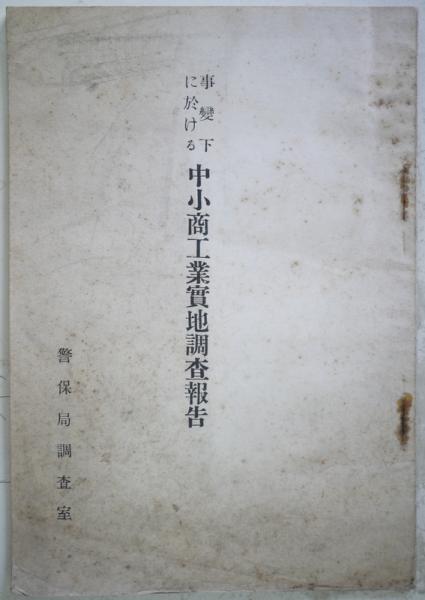 事變下
に於ける
中小商工業實地調査報告
警保局調査室